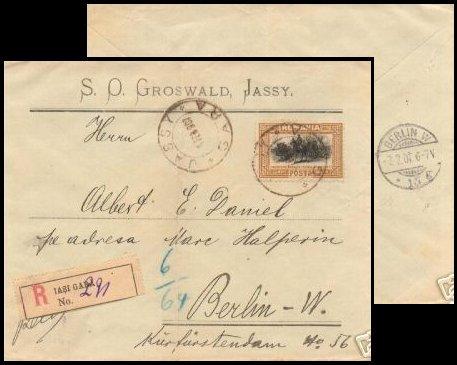 S. O. GROSWALD, JASSY.
JASSY
GARA
ROMANIA
POSTA
Herrn
Albert E. Daniel
pe adresa Marc Halperin
6
64
R IASI GARA
No. 291
Berlin-W.
Kurfürstendam No 56
BERLIN W.
2.2.07. 6-7V.
* 15 c